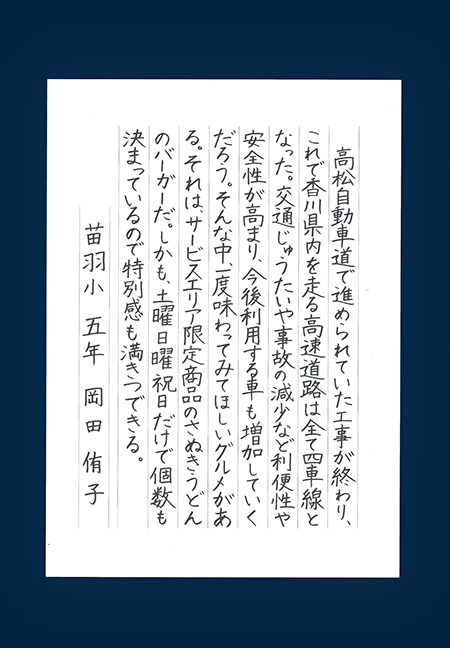 高松自動車道で進められていた工事が終わり、
これで香川県内を走る高速道路は全て四車線と
なった。交通じゅうたいや事故の減少など利便性や
安全性が高まり、今後利用する車も増加していく
だろう。そんな中、一度味わってみてほしいグルメがあ
る。それは、サービスエリア限定商品のさぬきうどん
のバーガーだ。しかも、土曜日曜祝日だけで個数も
決まっているので特別感も満きつできる。
苗羽小 五年 岡田侑子